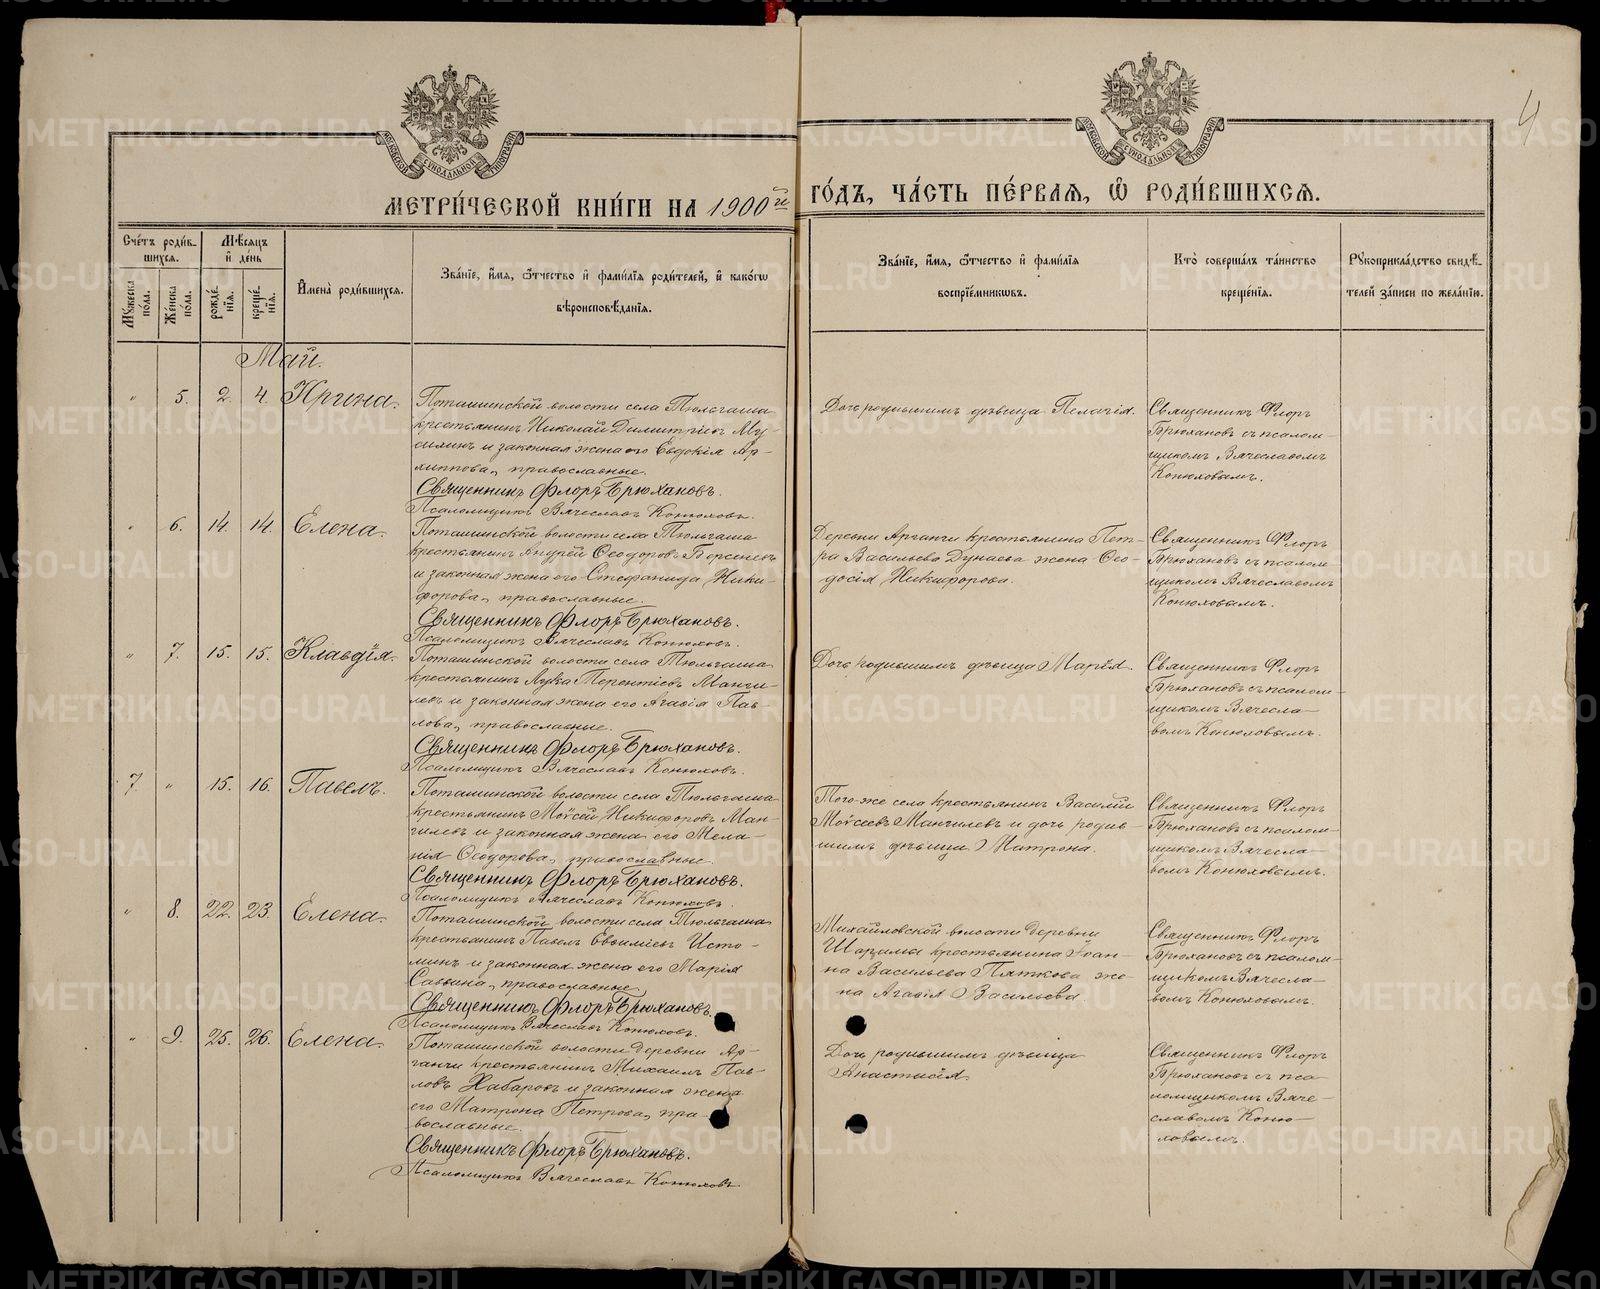 4
МОСКОВСКОЙ СѴНОДАЛЬНОЙ ТИПОГРАФІИ
МОСКОВСКОЙ СѴНОДАЛЬНОЙ ТИПОГРАФІИ
МЕТРИ́ЧЕСКОЙ КНИ́ГИ НА 1900й ГО́ДЪ, ЧА́СТЬ ПЕ́РВАѦ, Ѡ҆ РОДИ́ВШИХСѦ.
Сче́тъ роди́в-
шихсѧ.
Мѣ́сѧцъ
и҆ де́нь
Мꙋ́жеска
по́ла.
Же́нска
по́ла.
рожде́-
нїѧ.
креще́-
нїѧ.
И҆мена̀ роди́вшихсѧ.
Зва́нїе, и҆́мѧ, ѻ҆́тчество и҆ фами́лїѧ роди́телей, и҆ како́гѡ
вѣроисповѣ́данїѧ.
Зва́нїе, и҆́мѧ, ѻ҆́тчество и҆ фами́лїѧ
воспрїе́мникѡвъ.
Кто̀ соверша́лъ та́инство
креще́нїѧ.
Рꙋкоприкла́дство свидѣ́-
телей за́писи по жела́нїю.
Май.
" 5. 2. 4. Ирина.
Поташинской волости села Тюльгаша
крестьянинъ Николай Димитріевъ Му-
силинъ и законная жена его Евдокія Ар-
хиппова, православные.
Священникъ Флоръ Брюхановъ.
Псаломщикъ Вячеславъ Конюховъ.
Дочь родившимъ дѣвица Пелагія.
Священникъ Флоръ
Брюхановъ съ псалом-
щикомъ Вячеславомъ
Конюховымъ.
" 6. 14. 14. Елена.
Поташинской волости села Тюльгаша
крестьянинъ Андрей Ѳеодоровъ Берсеневъ
и законная жена его Стефанида Ники-
форова, православные.
Священникъ Флоръ Брюхановъ.
Псаломщикъ Вячеславъ Конюховъ.
Деревни Арганчи крестьянина Пет-
ра Васильева Дунаева жена Ѳео-
досія Никифорова.
Священникъ Флоръ
Брюхановъ съ псалом-
щикомъ Вячеславомъ
Конюховымъ.
" 7. 15. 15. Клавдія.
Поташинской волости села Тюльгаша
крестьянинъ Лука Терентіевъ Манги-
левъ и законная жена его Агафія Пав-
лова, православные.
Священникъ Флоръ Брюхановъ.
Псаломщикъ Вячеславъ Конюховъ.
Дочь родившимъ дѣвица Марія.
Священникъ Флоръ
Брюхановъ съ псалом-
щикомъ Вячесла-
вомъ Конюховымъ.
7. " 15. 16. Павелъ.
Поташинской волости села Тюльгаша
крестьянинъ Моѵсей Никифоровъ Ман-
гилевъ и законная жена его Мела-
нія Ѳеодорова, православные.
Священникъ Флоръ Брюхановъ.
Псаломщикъ Вячеславъ Конюховъ.
Того-же села крестьянинъ Василій
Моѵсеевъ Мангилевъ и дочь родив-
шимъ дѣвица Матрона.
Священникъ Флоръ
Брюхановъ съ псалом-
щикомъ Вячесла-
вомъ Конюховымъ.
" 8. 22. 23. Елена.
Поташинской волости села Тюльгаша
крестьянинъ Павелъ Евѳиміевъ Исто-
минъ и законная жена его Марія
Саввина, православные.
Священникъ Флоръ Брюхановъ.
Псаломщикъ Вячеславъ Конюховъ.
Михайловской волости деревни
Шарамы крестьянина Іоан-
на Васильева Пяткова же-
на Агафія Васильева.
Священникъ Флоръ
Брюхановъ съ псалом-
щикомъ Вячесла-
вомъ Конюховымъ.
" 9. 25. 26. Елена.
Поташинской волости деревни Ар-
ганчи крестьянинъ Михаилъ Пав-
ловъ Хабаровъ и законная жена
его Матрона Петрова, пра-
вославные.
Священникъ Флоръ Брюхановъ.
Псаломщикъ Вячеславъ Конюховъ.
Дочь родившимъ дѣвица
Анастасія.
Священникъ Флоръ
Брюхановъ съ пса-
ломщикомъ Вяче-
славомъ Коню-
ховымъ.
METRIKI.GASO-URAL.RU